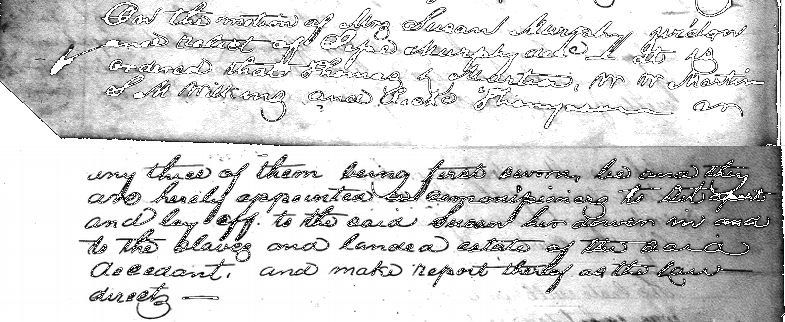 On the motion of Mrs Susan Murphy widow
and relict of Murphy decd it is
ordered that Thomas Martin, W W Martin
and Thompson or
any three of them being first sworn, be and they
are hereby appointed as commissioners to
and lay off to the said Susan her dower in and
to the slaves and landed estate of the said
decedant, and make report therof as the law
directs —